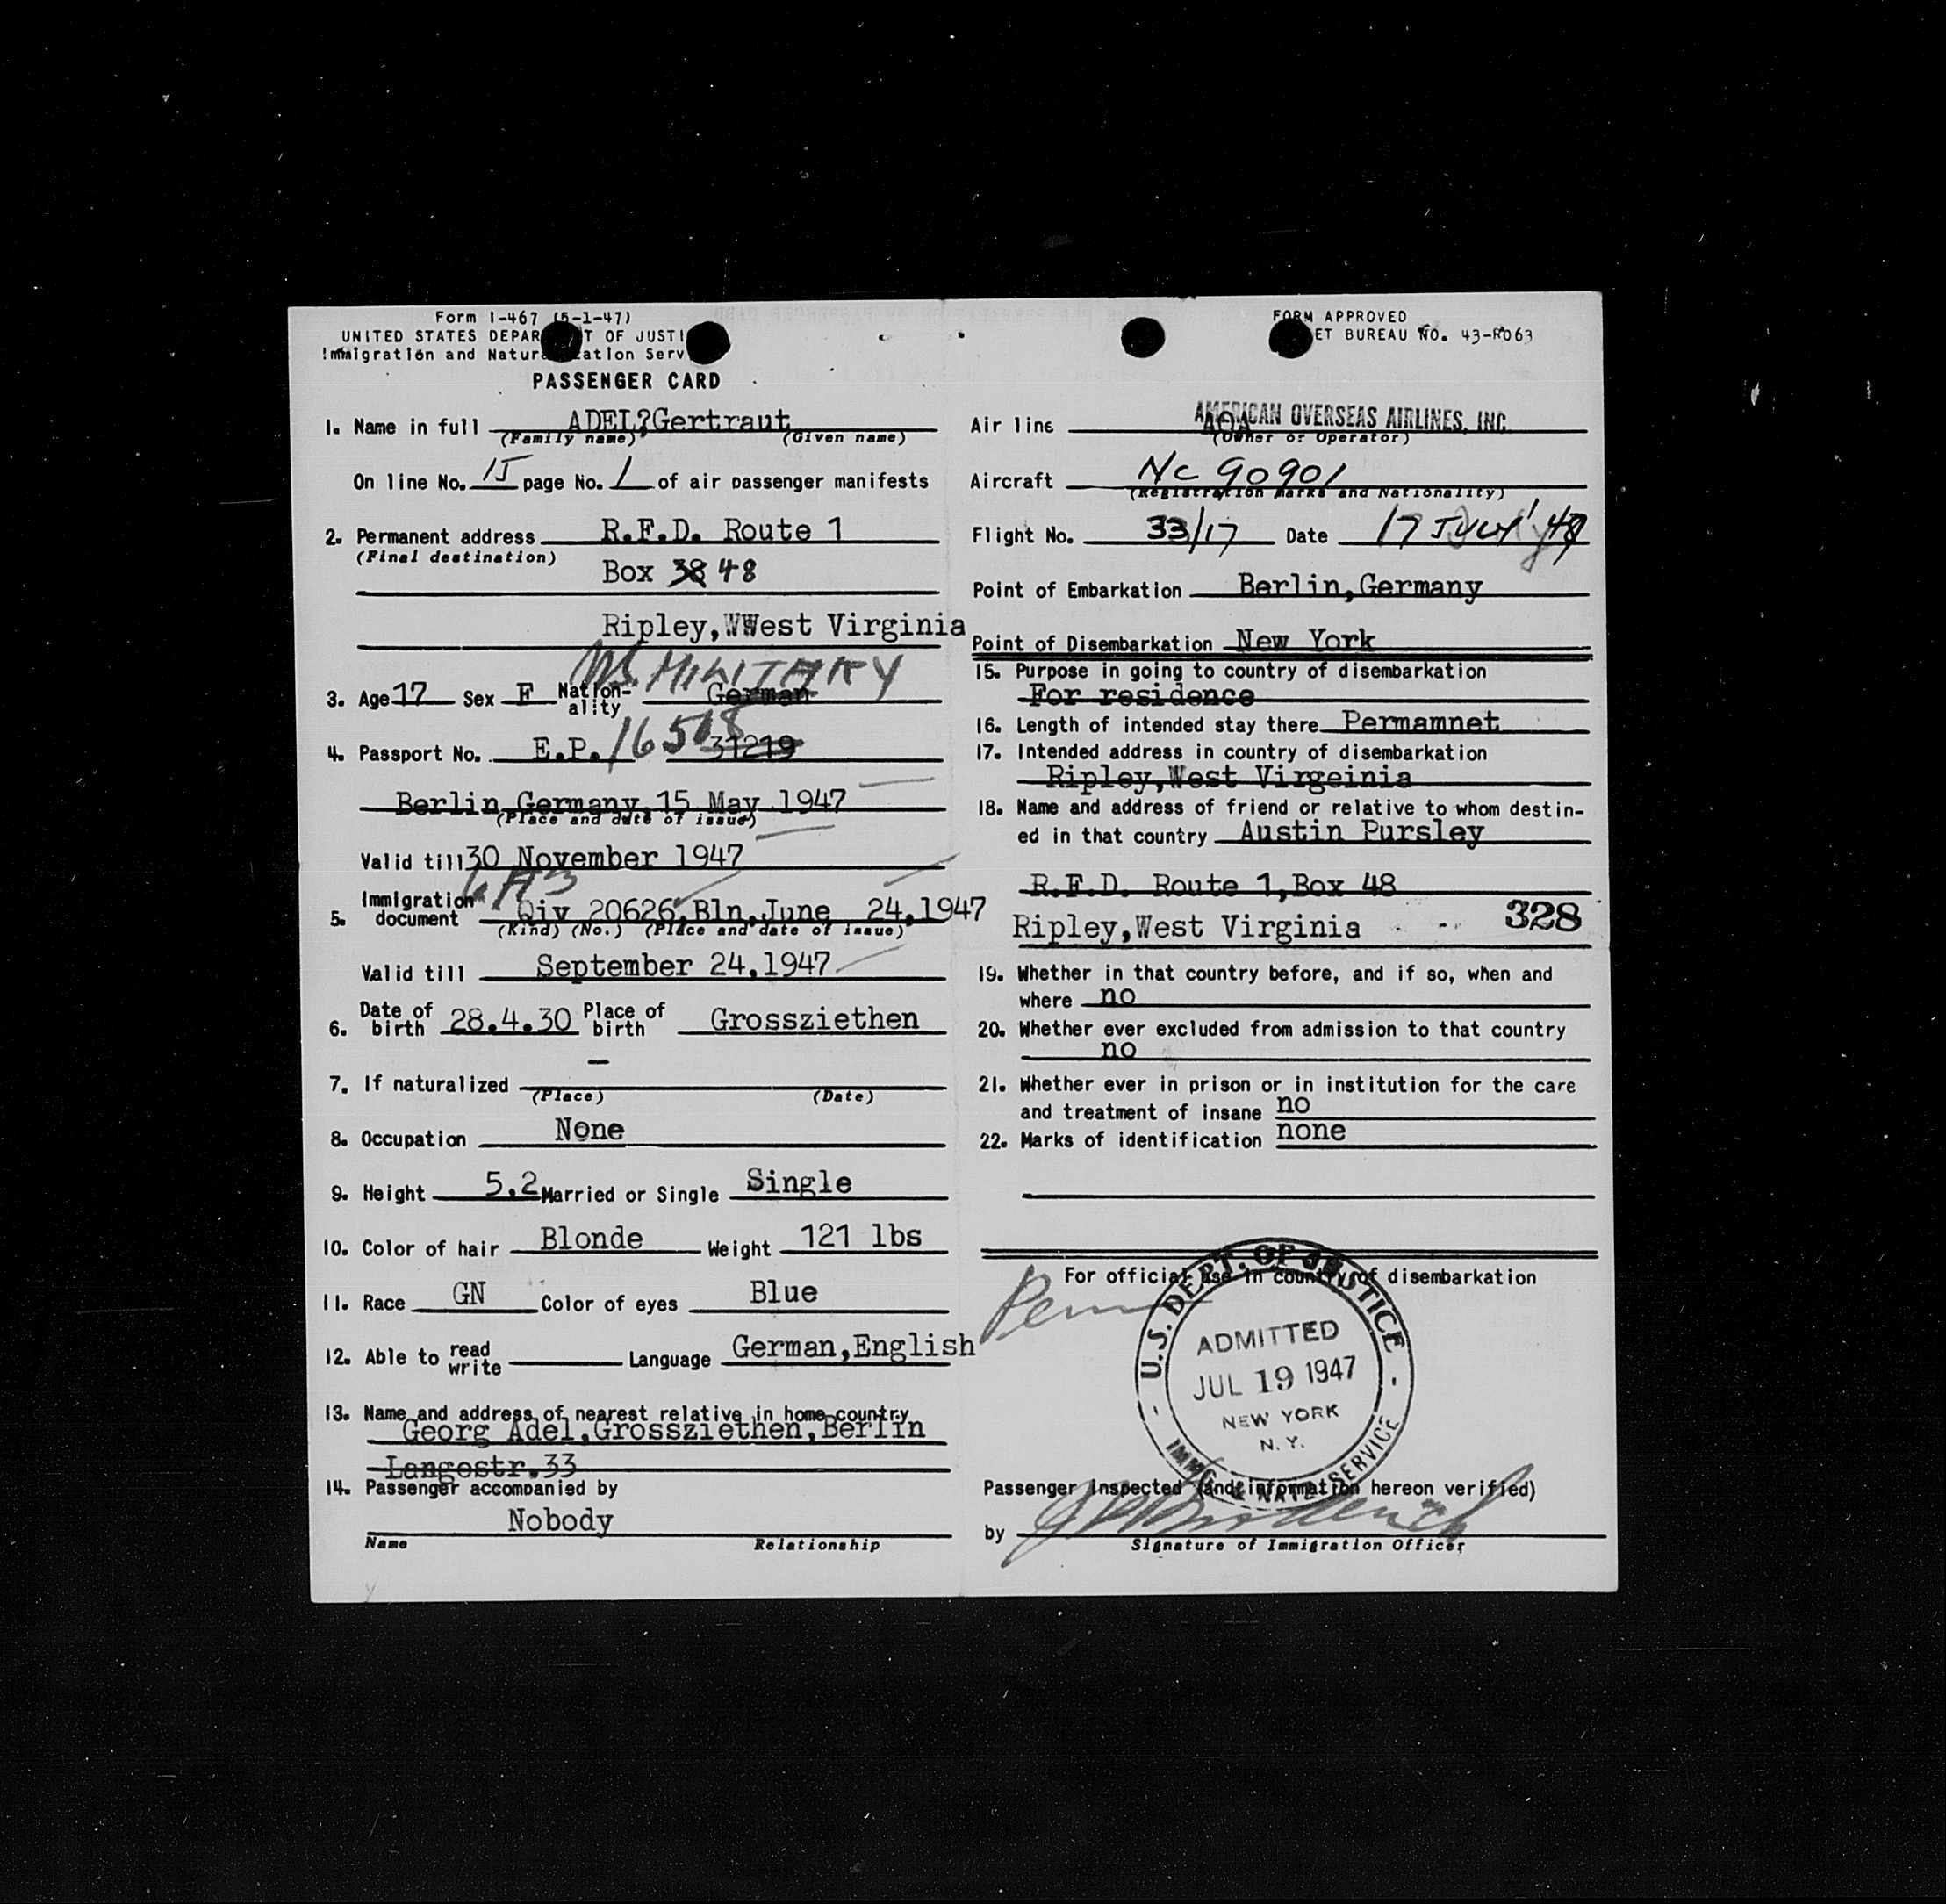 Form I-467 (5-1-47)
UNITED STATES DEPAR T OF JUSTI
Immigration and Natur ation Serv
PASSENGER CARD
1. Name in full ADEL?Gertraut
(Family name) (Given name)
On line No. 15 page No. 1 of air passenger manifests
2. Permanent address R.F.D. Route 1
(Final destination)
Box 38 48
Ripley,WWest Virginia
U.S. MILITARY
3. Age 17 Sex F Nation-ality German
4. Passport No. E.P. 16508 31219
Berlin,Germany,15 May 1947
(Place and date of issue)
Valid till 30 November 1947
5. Immigration document Qiv 20626,Bln,June 24,1947
(Kind) (No.) (Place and date of issue)
Valid till September 24,1947
6. Date of birth 28.4.30 Place of birth Grossziethen
7. If naturalized –
(Place) (Date)
8. Occupation None
9. Height 5,2 Married or Single Single
10. Color of hair Blonde Weight 121 lbs
11. Race GN Color of eyes Blue
12. Able to read write Language German,English
13. Name and address of nearest relative in home country
Georg Adel,Grossziethen,Berlin
Langestr.33
14. Passenger accompanied by
Nobody
Name Relationship
FORM APPROVED
ET BUREAU NO. 43-R063
Air line AOA AMERICAN OVERSEAS AIRLINES, INC.
(Owner or Operator)
Aircraft NC 90901
(Registration marks and Nationality)
Flight No. 33/17 Date 17 JULY '47
Point of Embarkation Berlin,Germany
Point of Disembarkation New York
15. Purpose in going to country of disembarkation
For residence
16. Length of intended stay there Permamnet
17. Intended address in country of disembarkation
Ripley,West Virgeinia
18. Name and address of friend or relative to whom destin-
ed in that country Austin Pursley
R.F.D. Route 1,Box 48
Ripley,West Virginia 328
19. Whether in that country before, and if so, when and
where no
20. Whether ever excluded from admission to that country
no
21. Whether ever in prison or in institution for the care
and treatment of insane no
22. Marks of identification none
For official use in country of disembarkation
Perm
U.S. DEPT. OF JUSTICE
ADMITTED
JUL 19 1947
NEW YORK
N. Y.
IMMG. & NATZ. SERVICE
Passenger Inspected (and information hereon verified)
by
Signature of Immigration Officer